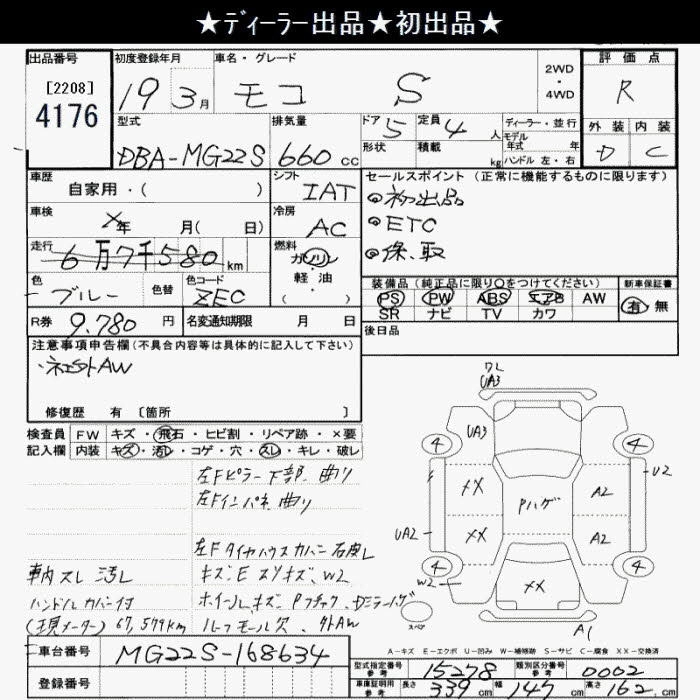 ★ﾃﾞｨｰﾗｰ出品★初出品★
出品番号 初度登録年月 車名・グレード 2WD・4WD 評価点
[2208]
4176
19 3月 モコ S R
型式 排気量 ドア 5 定員 4人 ディーラー・並行
モデル年式 年
外装 内装
DBA-MG22S 660cc 形状 積載 kg ハンドル 左・右 D C
車歴 自家用・( ) シフト IAT
セールスポイント (正常に機能するものに限ります)
◎初出品
車検 年 月( 日) 冷房 AC
◎ETC
走行 6万7千580km 燃料 ガソリン・軽油・( )
◎保、取
色 ブルー 色替 色コード ZEC
装備品 (純正品に限り○をつけてください) 新車保証書
PS PW ABS エアB AW 有 無
SR ナビ TV カワ
R券 9.780円 名変通知期限 月 日
後日品
注意事項申告欄(不具合内容等は具体的に記入して下さい)
修復歴 有 〔箇所 〕
検査員記入欄 FW キズ・飛石・ヒビ割・リペア跡・×要
内装 キズ・汚レ・コゲ・穴・スレ・キレ・破レ
左Fピラー下部 曲り
左Fインパネ 曲り
左Fタイヤハウスカバー 右戻し
車内スレ 汚レ キズ・E スリキズ、W2
ハンドルカバー付 ホイールキズ、
(現メーター) 67,579km ルーフモール欠、外AW
UA3
UA3
4 4
XX A2 U2
Pハゲ
UA2 XX A2
4 4
W2 XX
スペア A1
A-キズ E-エクボ U-凹み W-補修跡 S-サビ C-腐食 XX-交換済
車台番号 MG22S-168634
登録番号
型式指定番号 参考 15278 類別区分番号 参考 0002
車庫証明用 参考 長さ 339cm 幅 147cm 高さ 162cm